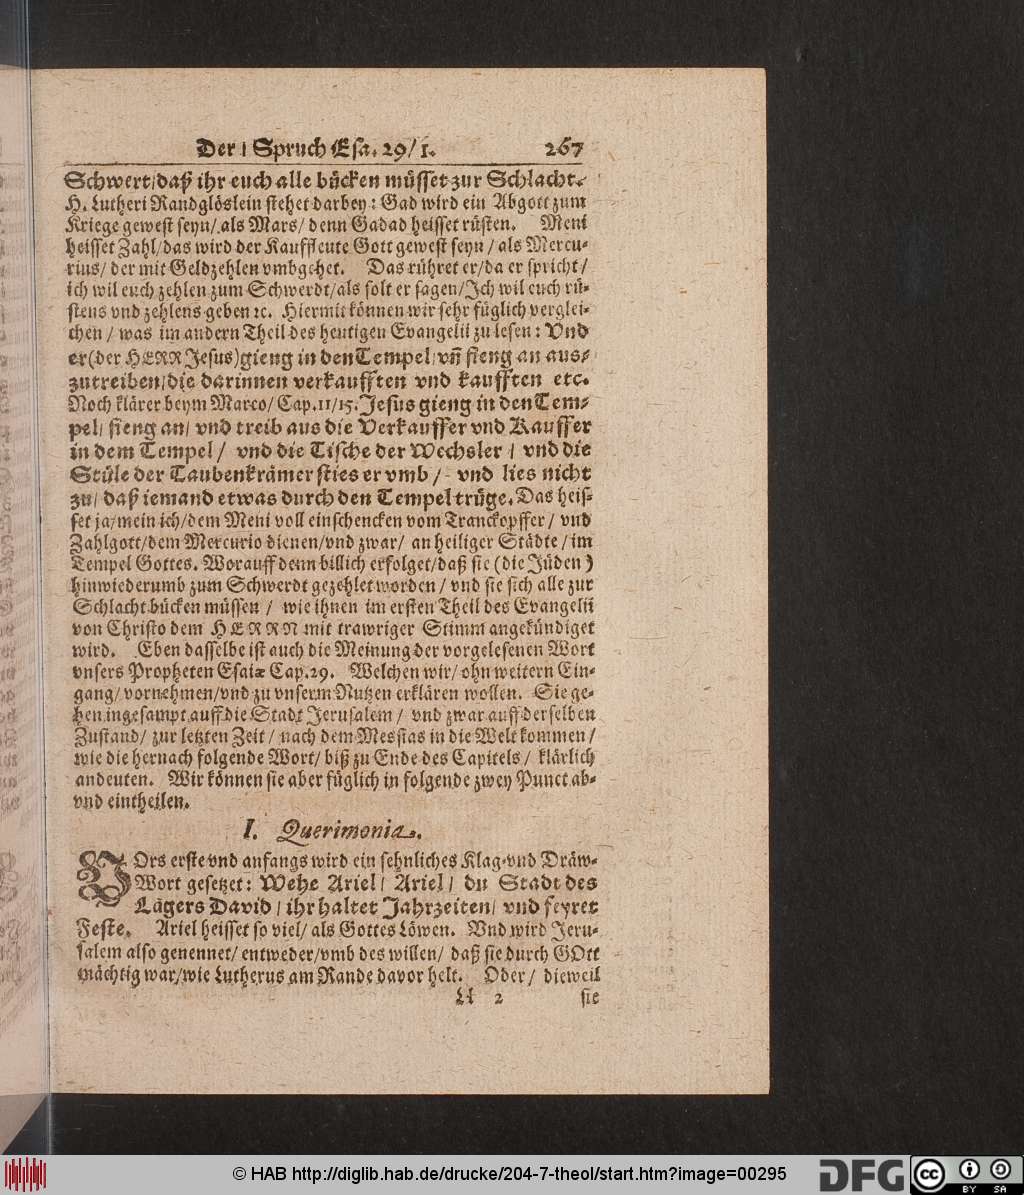 Der / Spruch Esa. 29/1. 267
Schwert/daß ihr euch alle bücken müsset zur Schlacht.
H. Lutheri Randglöslein stehet darbey: Gad wird ein Abgott zum
Kriege gewest seyn/ als Mars/ denn Gadad heisset rüsten. Meni
heisset Zahl/das wird der Kauffleute Gott gewest seyn / als Mercu-
rius/ der mit Geldzehlen vmbgehet. Das rühret er/da er spricht/
ich wil euch zehlen zum Schwerdt/als solt er sagen/Ich wil euch rü-
stens vnd zehlens geben ꝛc. Hiermit können wir sehr füglich verglei-
chen / was im andern Theil des heutigen Evangelii zu lesen: Vnd
er(der HERR Jesus)gieng in den Tempel/vn̄ fieng an aus-
zutreiben/die darinnen verkaufften vnd kaufften etc.
Noch klärer beym Marco/ Cap.11/15. Jesus gieng in den Tem-
pel/ fieng an/ vnd treib aus die Verkauffer vnd Kauffer
in dem Tempel/ vnd die Tische der Wechsler / vnd die
Stüle der Taubenkrämer sties er vmb /- vnd lies nicht
zu/ daß iemand etwas durch den Tempel trüge. Das heis-
set ja/mein ich/dem Meni voll einschencken vom Tranckopffer/ vnd
Zahlgott/dem Mercurio dienen/vnd zwar/ an heiliger Städte / im
Tempel Gottes. Worauff denn billich erfolget/daß sie (die Jüden )
hinwiederumb zum Schwerdt gezehlet worden / vnd sie sich alle zur
Schlacht bücken müssen / wie ihnen im ersten Theil des Evangelii
von Christo dem HERRN mit trawriger Stimm angekündiget
wird. Eben dasselbe ist auch die Meinung der vorgelesenen Wort
vnsers Propheten Esaiæ Cap.29. Welchen wir/ ohn weitern Ein-
gang/ vornehmen/vnd zu vnserm Nutzen erklären wollen. Sie ge-
hen ingesampt auff die Stadt Jerusalem / vnd zwar auff derselben
Zustand/ zur letzten Zeit / nach dem Messias in die Welt kommen /
wie die hernach folgende Wort/ biß zu Ende des Capitels / klärlich
andeuten. Wir können sie aber füglich in folgende zwey Punct ab-
vnd eintheilen.
I. Querimonia.
VOrs erste vnd anfangs wird ein sehnliches Klag-vnd Dräw-
Wort gesetzet: Wehe Ariel/ Ariel/ du Stadt des
Lägers David / ihr haltet Jahrzeiten/ vnd feyret
Feste. Ariel heisset so viel/ als Gottes Löwen. Vnd wird Jeru-
salem also genennet/ entweder/vmb des willen/ daß sie durch GOtt
mächtig war/wie Lutherus am Rande davor helt. Oder/ dieweil
Ll 2 sie
© HAB http://diglib.hab.de/drucke/204-7-theol/start.htm?image=00295
DFG
cc BY SA